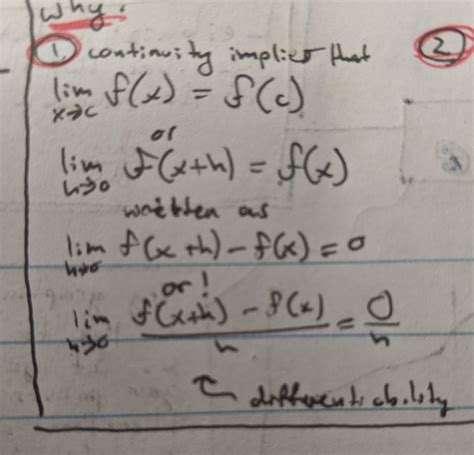 Why?
① continuity implies that
②
lim f(x) = f(c)
x→c
or
lim f(x+h) = f(x)
h→0
written as
lim f(x+h) - f(x) = 0
h→0
or!
lim f(x+h) - f(x) / h = 0 / h
h→0
differentiability